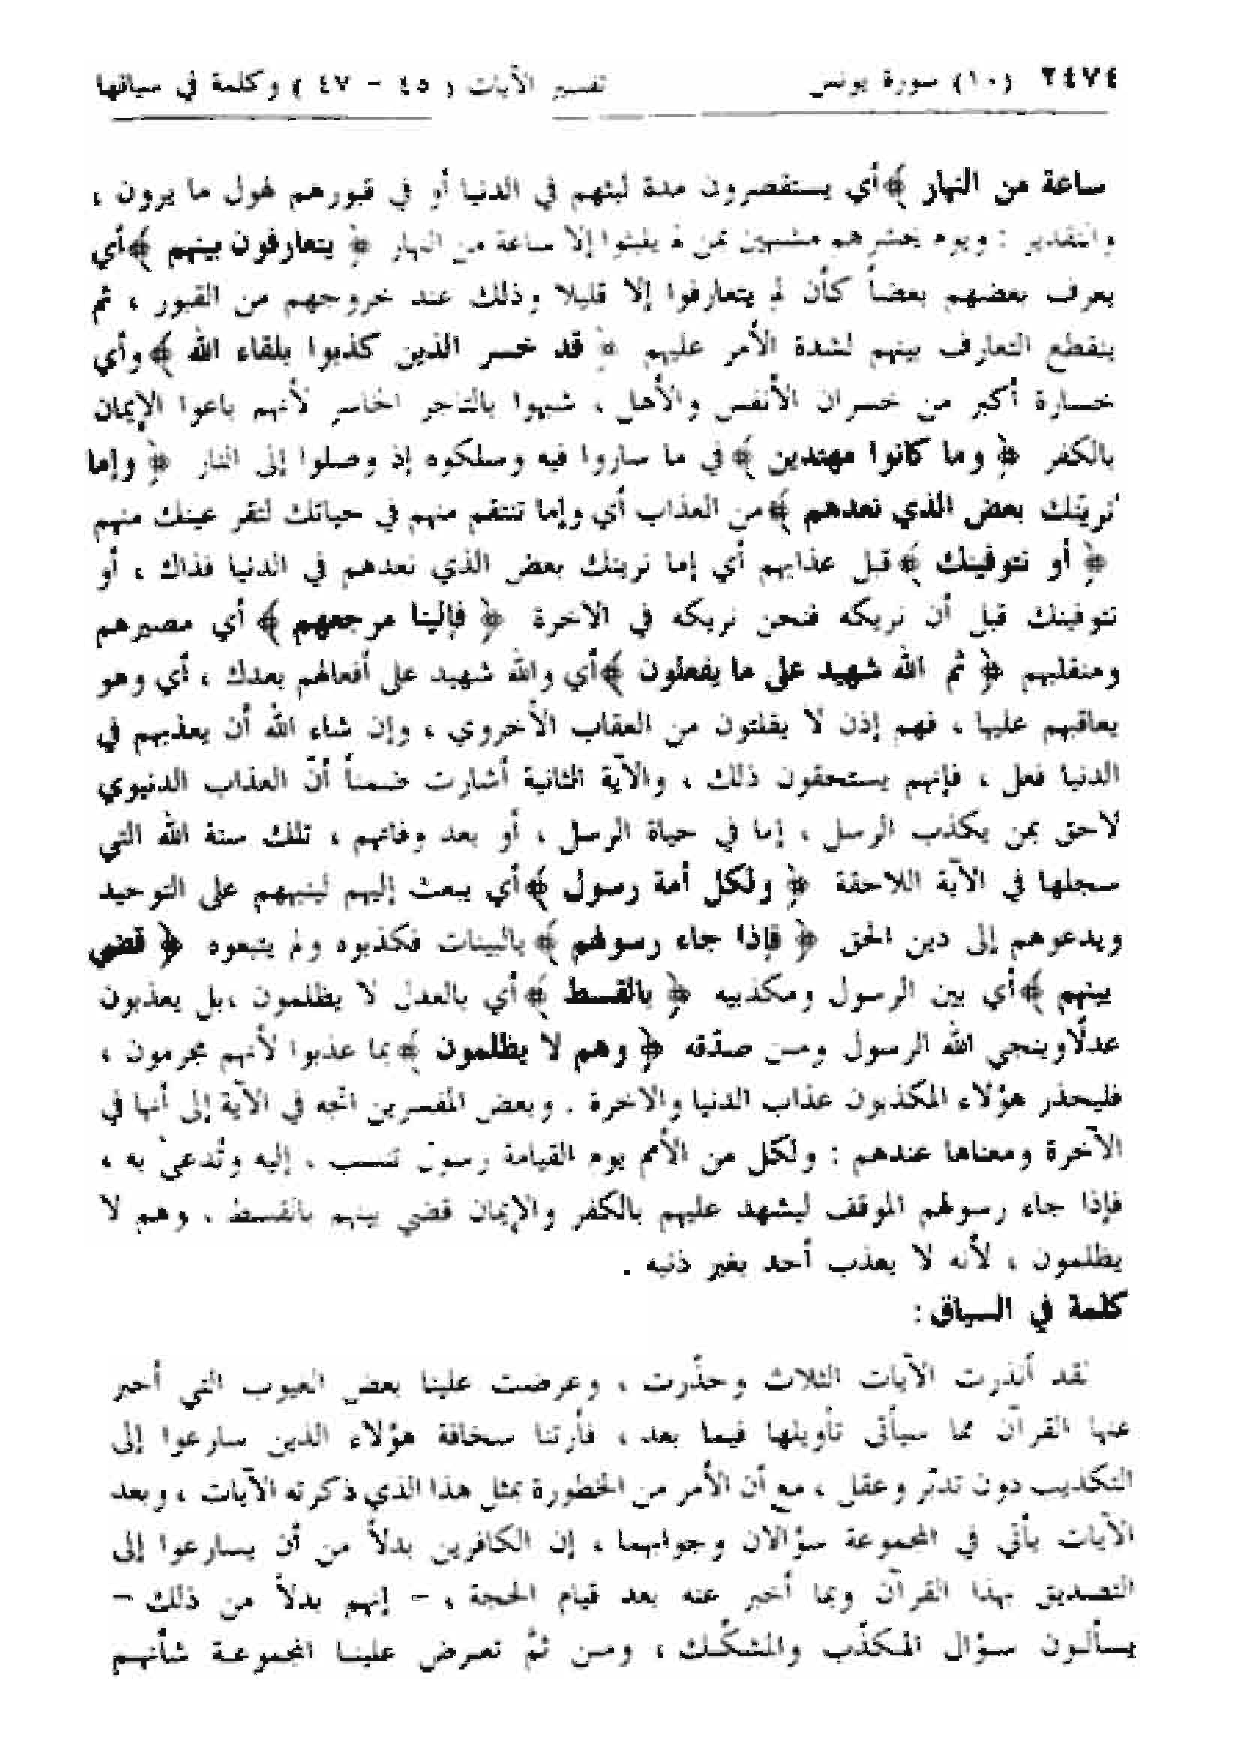 ٢٤٧٤ (١٠) سورة يونس تفسير الآيات ( ٤٥ - ٤٧ ) وكلمة في سياقها
ساعة من النهار ﴾ أي يستقصرون مدة لبثهم في الدنيا أو في قبورهم لهول ما يرون ،
والتقدير : ويوم نحشرهم مشبهين بمن لم يلبثوا إلا ساعة من النهار ﴿ يتعارفون بينهم ﴾ أي
يعرف بعضهم بعضاً كأن لم يتعارفوا إلا قليلا وذلك عند خروجهم من القبور ، ثم
ينقطع التعارف بينهم لشدة الأمر عليهم ﴿ قد خسر الذين كذبوا بلقاء الله ﴾ وأي
خسارة أكبر من خسران الأنفس والأهل ، شبهوا بالتاجر الخاسر لأنهم باعوا الإيمان
بالكفر ﴿ وما كانوا مهتدين ﴾ في ما ساروا فيه وسلكوه إذ وصلوا إلى النار ﴿ وإما
نرينك بعض الذي نعدهم ﴾ من العذاب أي وإما ننتقم منهم في حياتك لتقر عينك منهم
﴿ أو نتوفينك ﴾ قبل عذابهم أي إما نرينك بعض الذي نعدهم في الدنيا فذاك ، أو
نتوفينك قبل أن نريكه فنحن نريكه في الآخرة ﴿ فإلينا مرجعهم ﴾ أي مصيرهم
ومنقلبهم ﴿ ثم الله شهيد على ما يفعلون ﴾ أي والله شهيد على أفعالهم بعدك ، أي وهو
يعاقبهم عليها ، فهم إذن لا يفلتون من العقاب الأخروي ، وإن شاء الله أن يعذبهم في
الدنيا فعل ، فإنهم يستحقون ذلك ، والآية الثانية أشارت ضمناً أنّ العذاب الدنيوي
لاحق بمن يكذب الرسل ، إما في حياة الرسل ، أو بعد وفاتهم ، تلك سنة الله التي
سجلها في الآية اللاحقة ﴿ ولكل أمة رسول ﴾ أي يبعث إليهم لينبههم على التوحيد
ويدعوهم إلى دين الحق ﴿ فإذا جاء رسولهم ﴾ بالبينات فكذبوه ولم يتبعوه ﴿ قضي
بينهم ﴾ أي بين الرسول ومكذبيه ﴿ بالقسط ﴾ أي بالعدل لا يظلمون ،بل يعذبون
عدلًا وينجي الله الرسول ومن صدّقه ﴿ وهم لا يظلمون ﴾ بما عذبوا لأنهم مجرمون ،
فليحذر هؤلاء المكذبون عذاب الدنيا والآخرة . وبعض المفسرين اتجه في الآية إلى أنها في
الآخرة ومعناها عندهم : ولكل من الأمم يوم القيامة رسول تنسب إليه وتُدعى به ،
فإذا جاء رسولهم الموقف ليشهد عليهم بالكفر والإيمان قضي بينهم بالقسط ، وهم لا
يظلمون ، لأنه لا يعذب أحد بغير ذنبه .
كلمة في السياق :
لقد أنذرت الآيات الثلاث وحذّرت ، وعرضت علينا بعض العيوب التي أخبر
عنها القرآن مما سيأتي تأويلها فيما بعد ، فأرتنا سخافة هؤلاء الذين سارعوا إلى
التكذيب دون تدبّر وعقل ، مع أن الأمر من الخطورة بمثل هذا الذي ذكرته الآيات ، وبعد
الآيات يأتي في المجموعة سؤالان وجوابهما ، إن الكافرين بدلاً من أن يسارعوا إلى
التصديق بهذا القرآن وبما أخبر عنه بعد قيام الحجة ، - إنهم بدلاً من ذلك -
يسألون سؤال المكذّب والمشكّك ، ومن ثمّ تعرض علينا المجموعة شأنهم